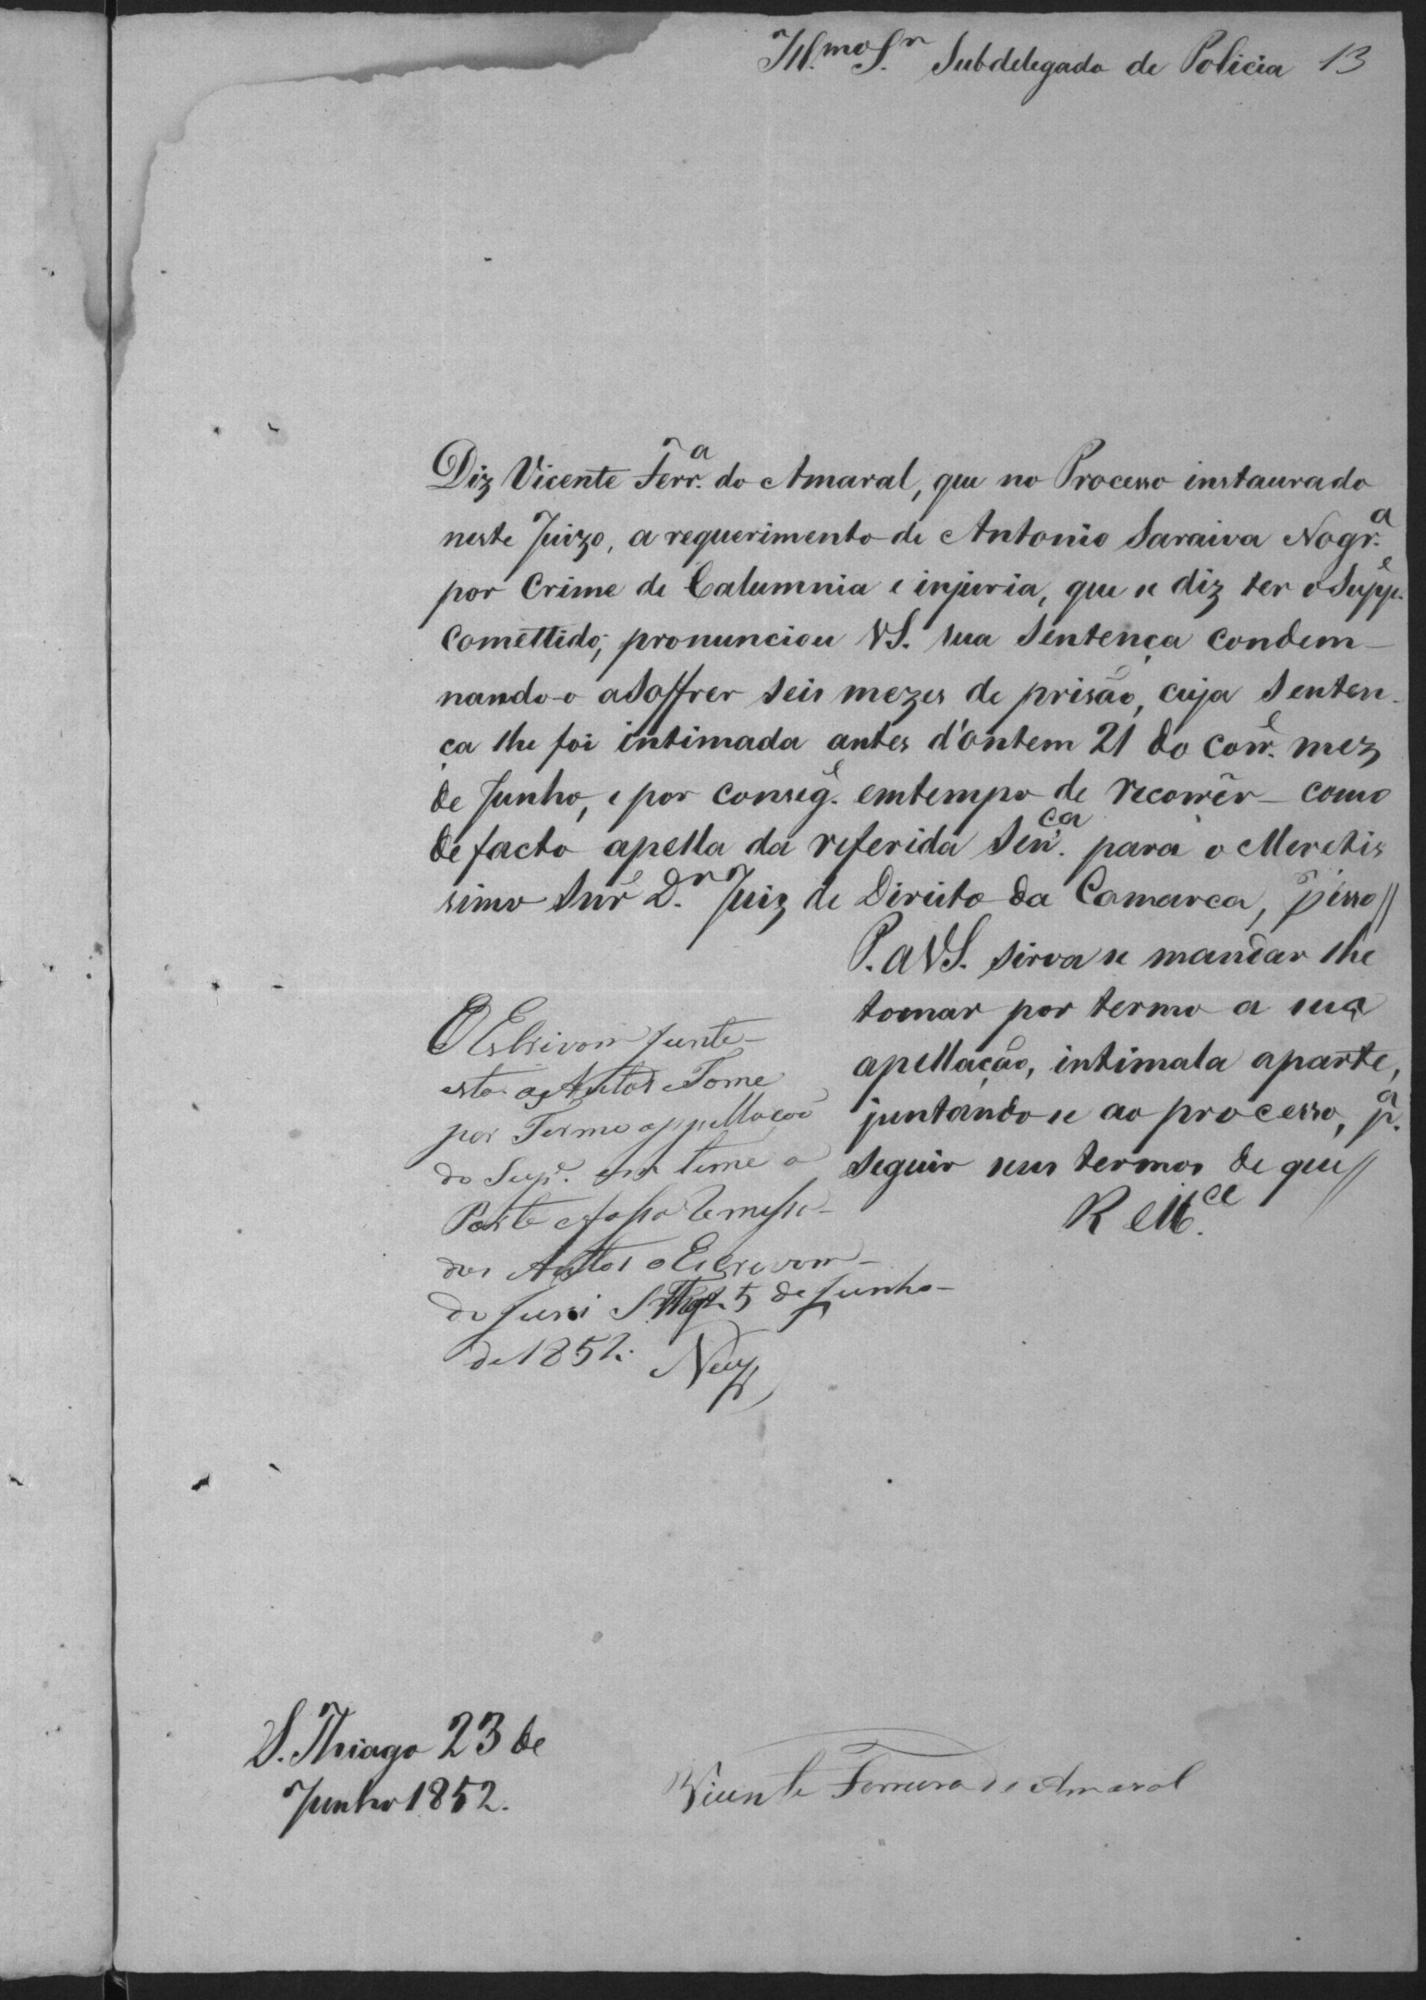 Ill.mo S.r Subdelegado de Policia 13
Diz Vicente Ferr.a do Amaral, que no Processo instaurado
neste Juizo, a requerimento de Antonio Saraiva Nogr.a
por Crime de Calumnia e injuria, que se diz ter o Supp.e
Comettido, pronunciou VS. sua Sentença condem-
nando-o a Soffrer Seis mezes de prisão, cuja Senten-
ça lhe foi intimada antes d'ontem 21 do corr.e mez
de Junho, e por conseg.e emtempo de recorrêr como
de facto apella da referida Sen.ça para o Meretis
simo Snr D.r Juiz de Direito da Comarca, pisso//
P. a VS. sirva se mandar lhe
tomar por termo a sua
apellação, intimala aparte,
juntando se ao processo, p.a
seguir seus termos de que//
R M.ce
O Escrivam junte
esta os Autos Tome
por Termo appellacaõ
do Sup.e a
Parte e fassa Remessa
dos Auttos o Escrivam
do Juri 5 de Junho
de 1852.
S. Thiago 23 de
Junho 1852.
Vicente Ferreira do Amaral